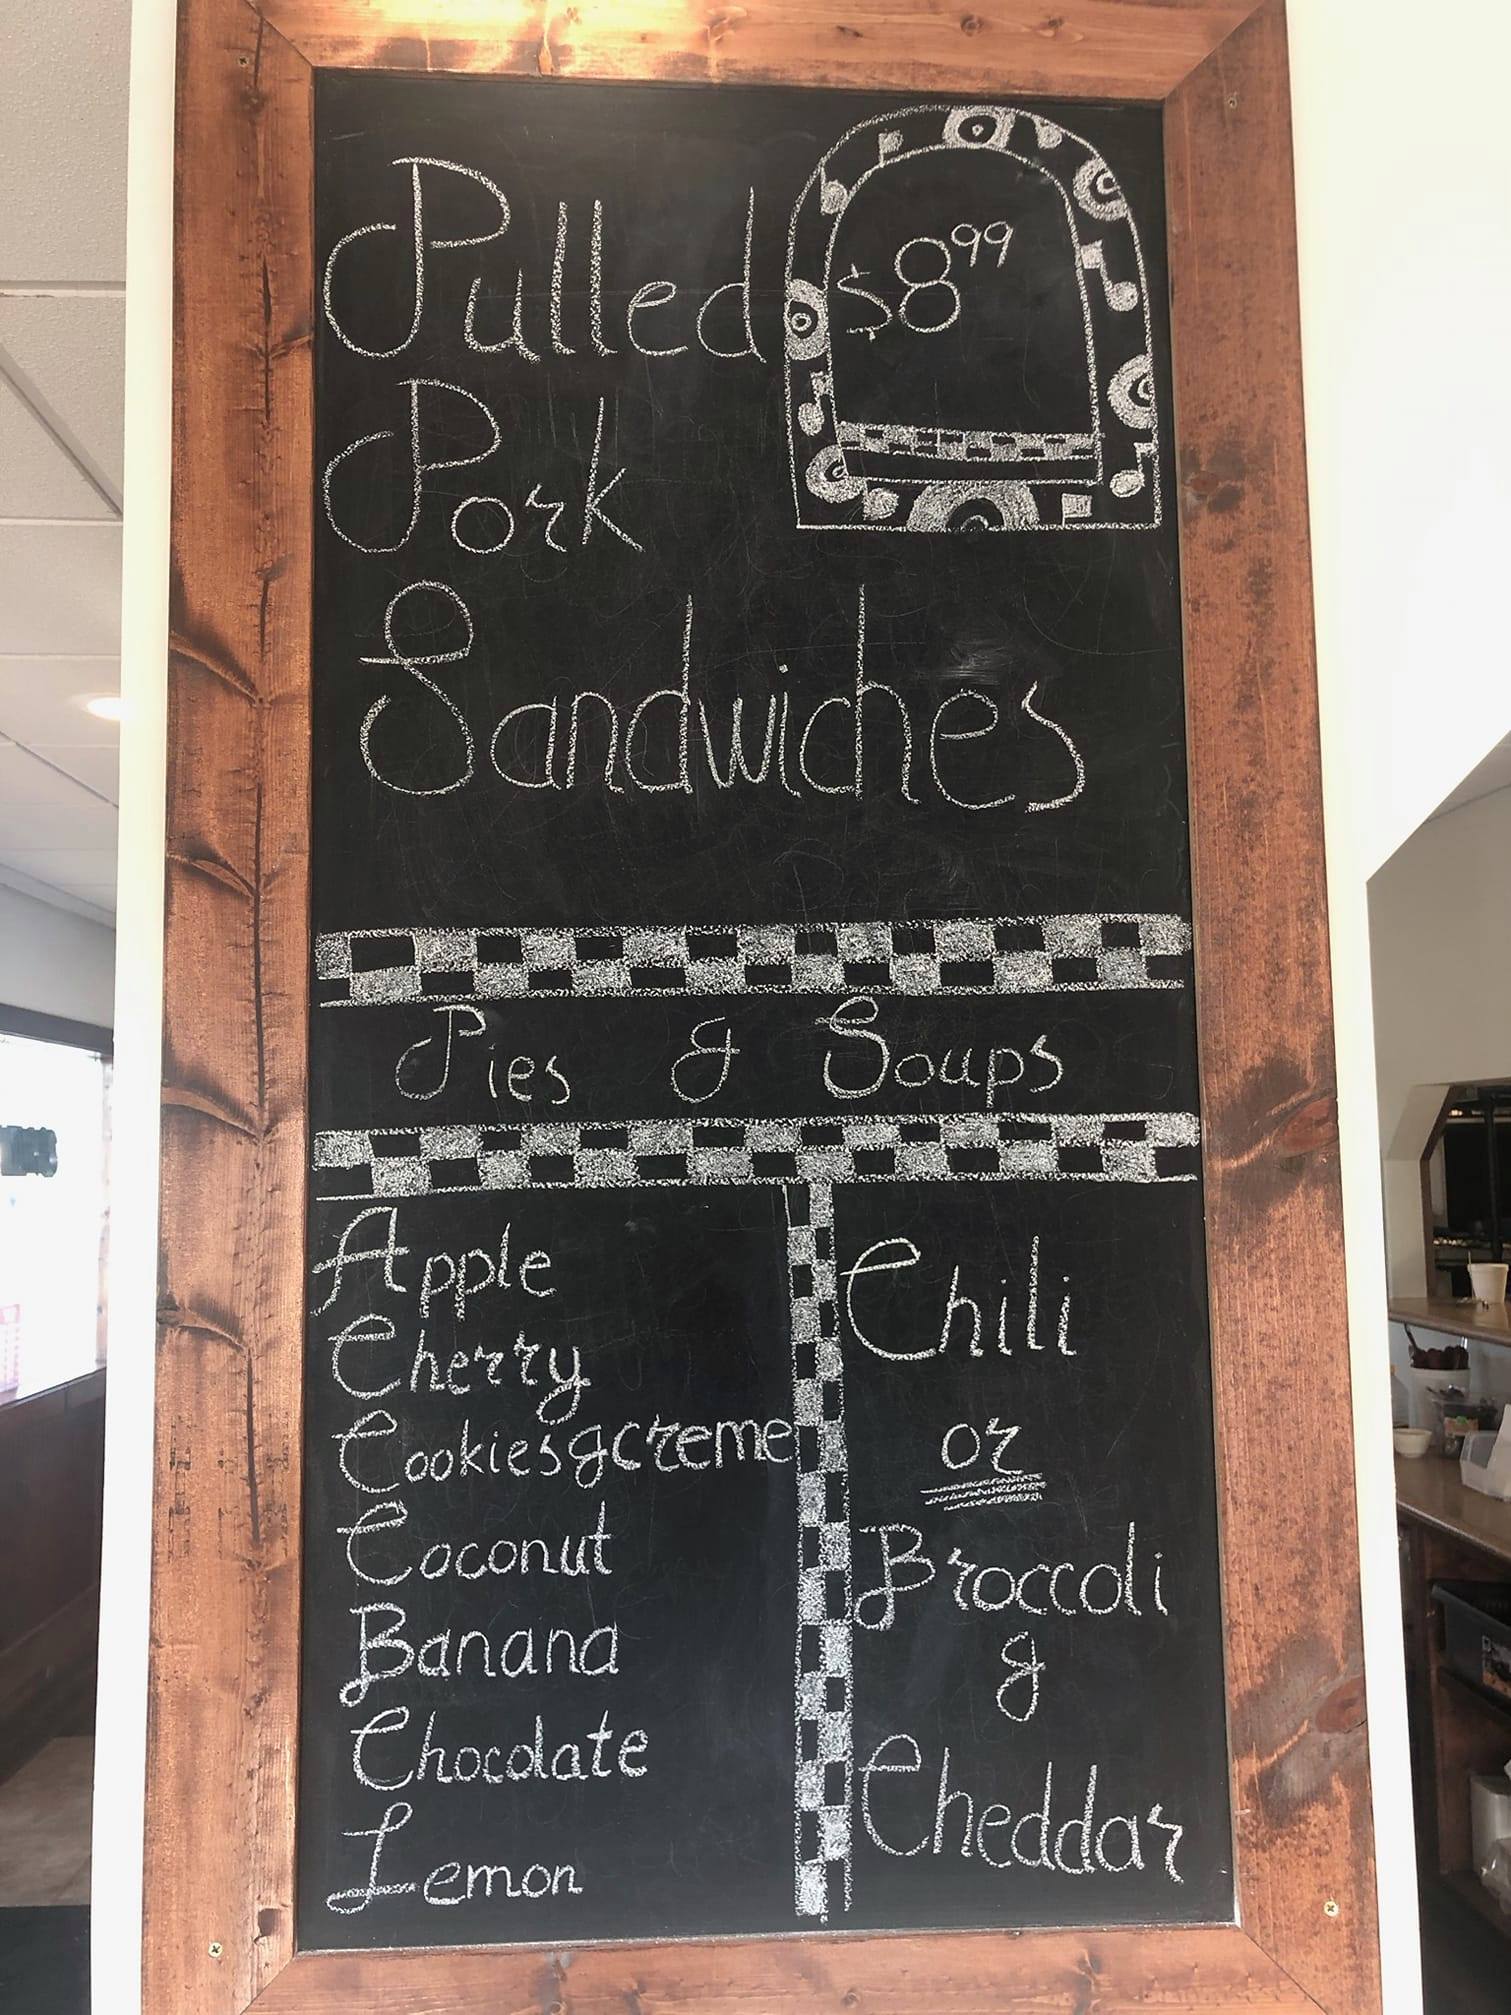 Pulled
$8.99
Pork
Sandwiches
Pies & Soups
Apple
Cherry
Cookies & creme
Coconut
Banana
Chocolate
Lemon
Chili
or
Broccoli
&
Cheddar